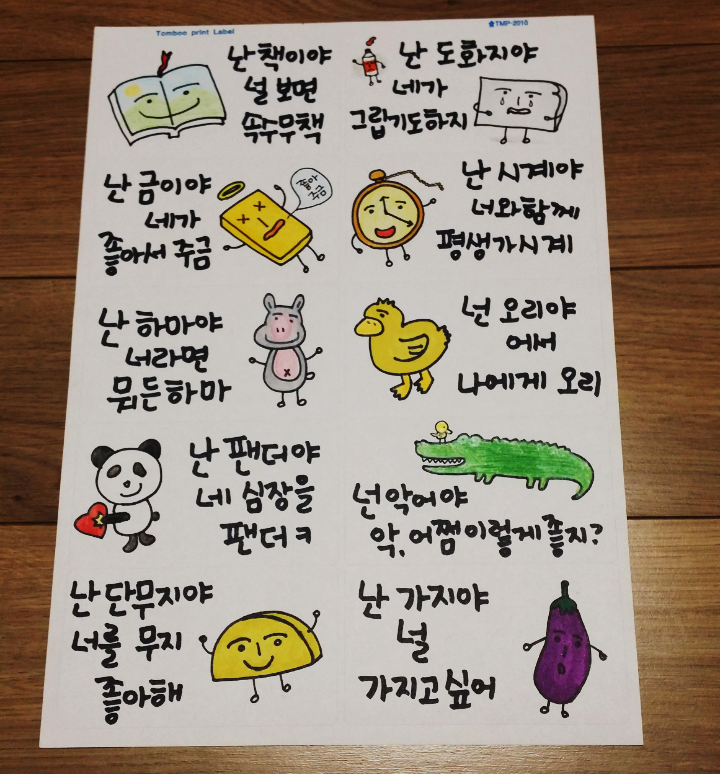 Tombo print Label
TMP-2010
난 책이야
널 보면
속수무책
난 도화지야
네가
그립기도하지
난 금이야
네가
좋아서 주금
좋아
주금
난 시계야
너와함께
평생가시계
난 하마야
너라면
뭐든하마
넌 오리야
어서
나에게 오리
난 팬더야
네 심장을
팬더ㅋ
넌악어야
악, 어쩜이렇게좋지?
난 단무지야
너를 무지
좋아해
난 가지야
널
가지고싶어